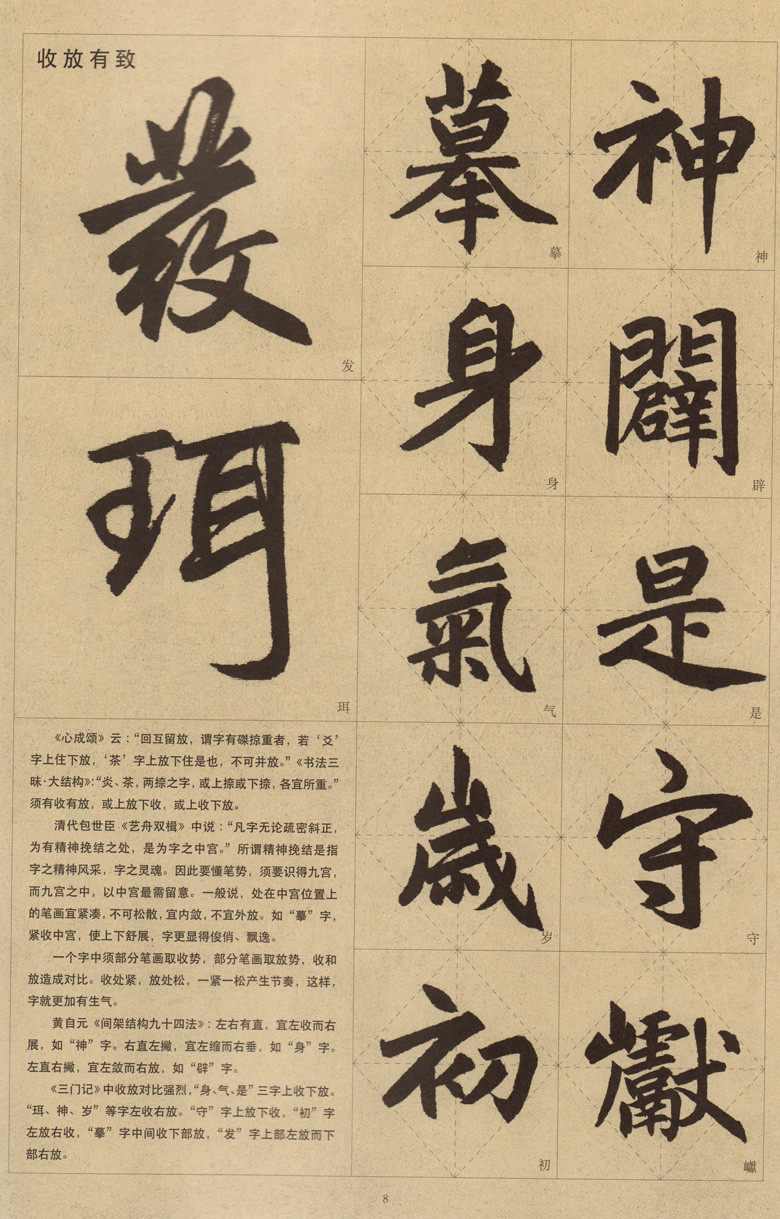 收放有致
發
发
珥
珥
摹
摹
身
身
氣
气
歲
岁
初
初
神
神
闢
辟
是
是
守
守
巘
《心成颂》云：“回互留放，谓字有磔掠重者，若‘爻’
字上住下放，‘茶’字上放下住是也，不可并放。”《书法三
昧·大结构》：“炎、茶，两捺之字，或上捺或下捺，各宜所重。”
须有收有放，或上放下收，或上收下放。
清代包世臣《艺舟双楫》中说：“凡字无论疏密斜正，
为有精神挽结之处，是为字之中宫。”所谓精神挽结是指
字之精神风采，字之灵魂。因此要懂笔势，须要识得九宫，
而九宫之中，以中宫最需留意。一般说，处在中宫位置上
的笔画宜紧凑，不可松散，宜内敛，不宜外放。如“摹”字，
紧收中宫，使上下舒展，字更显得俊俏、飘逸。
一个字中须部分笔画取收势，部分笔画取放势，收和
放造成对比。收处紧，放处松，一紧一松产生节奏，这样，
字就更加有生气。
黄自元《间架结构九十四法》：左右有直，宜左收而右
展，如“神”字。右直左撇，宜左缩而右垂，如“身”字。
左直右撇，宜左敛而右放，如“辟”字。
《三门记》中收放对比强烈，“身、气、是”三字上收下放。
“珥、神、岁”等字左收右放。“守”字上放下收，“初”字
左放右收，“摹”字中间收下部放，“发”字上部左放而下
部右放。
8